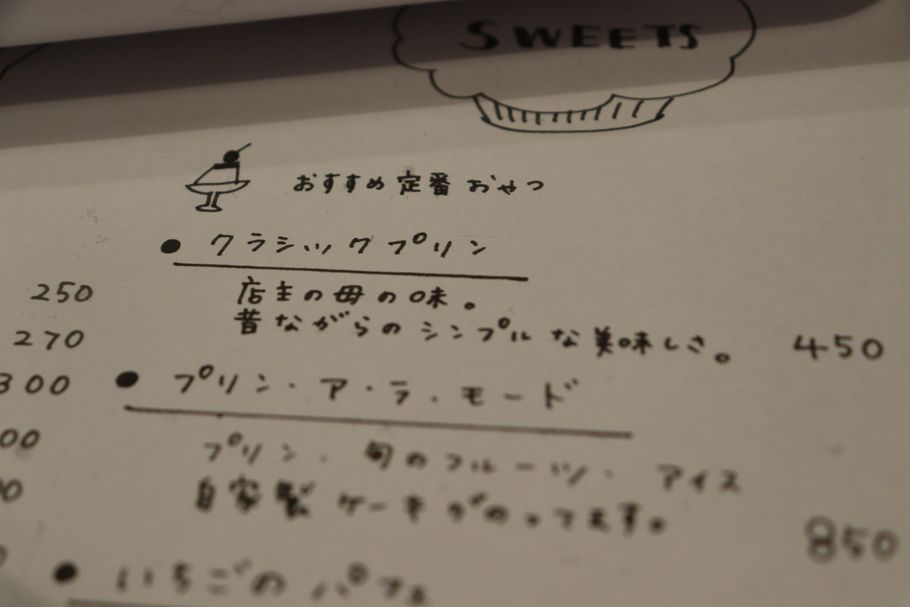 SWEETS
おすすめ定番おやつ
● クラシックプリン
店主の母の味。
昔ながらのシンプルな美味しさ。 450
● プリン・ア・ラ・モード
プリン・旬のフルーツ・アイス
自家製ケーキがのってます。
850
● いちごのパフェ
250
270
300
00